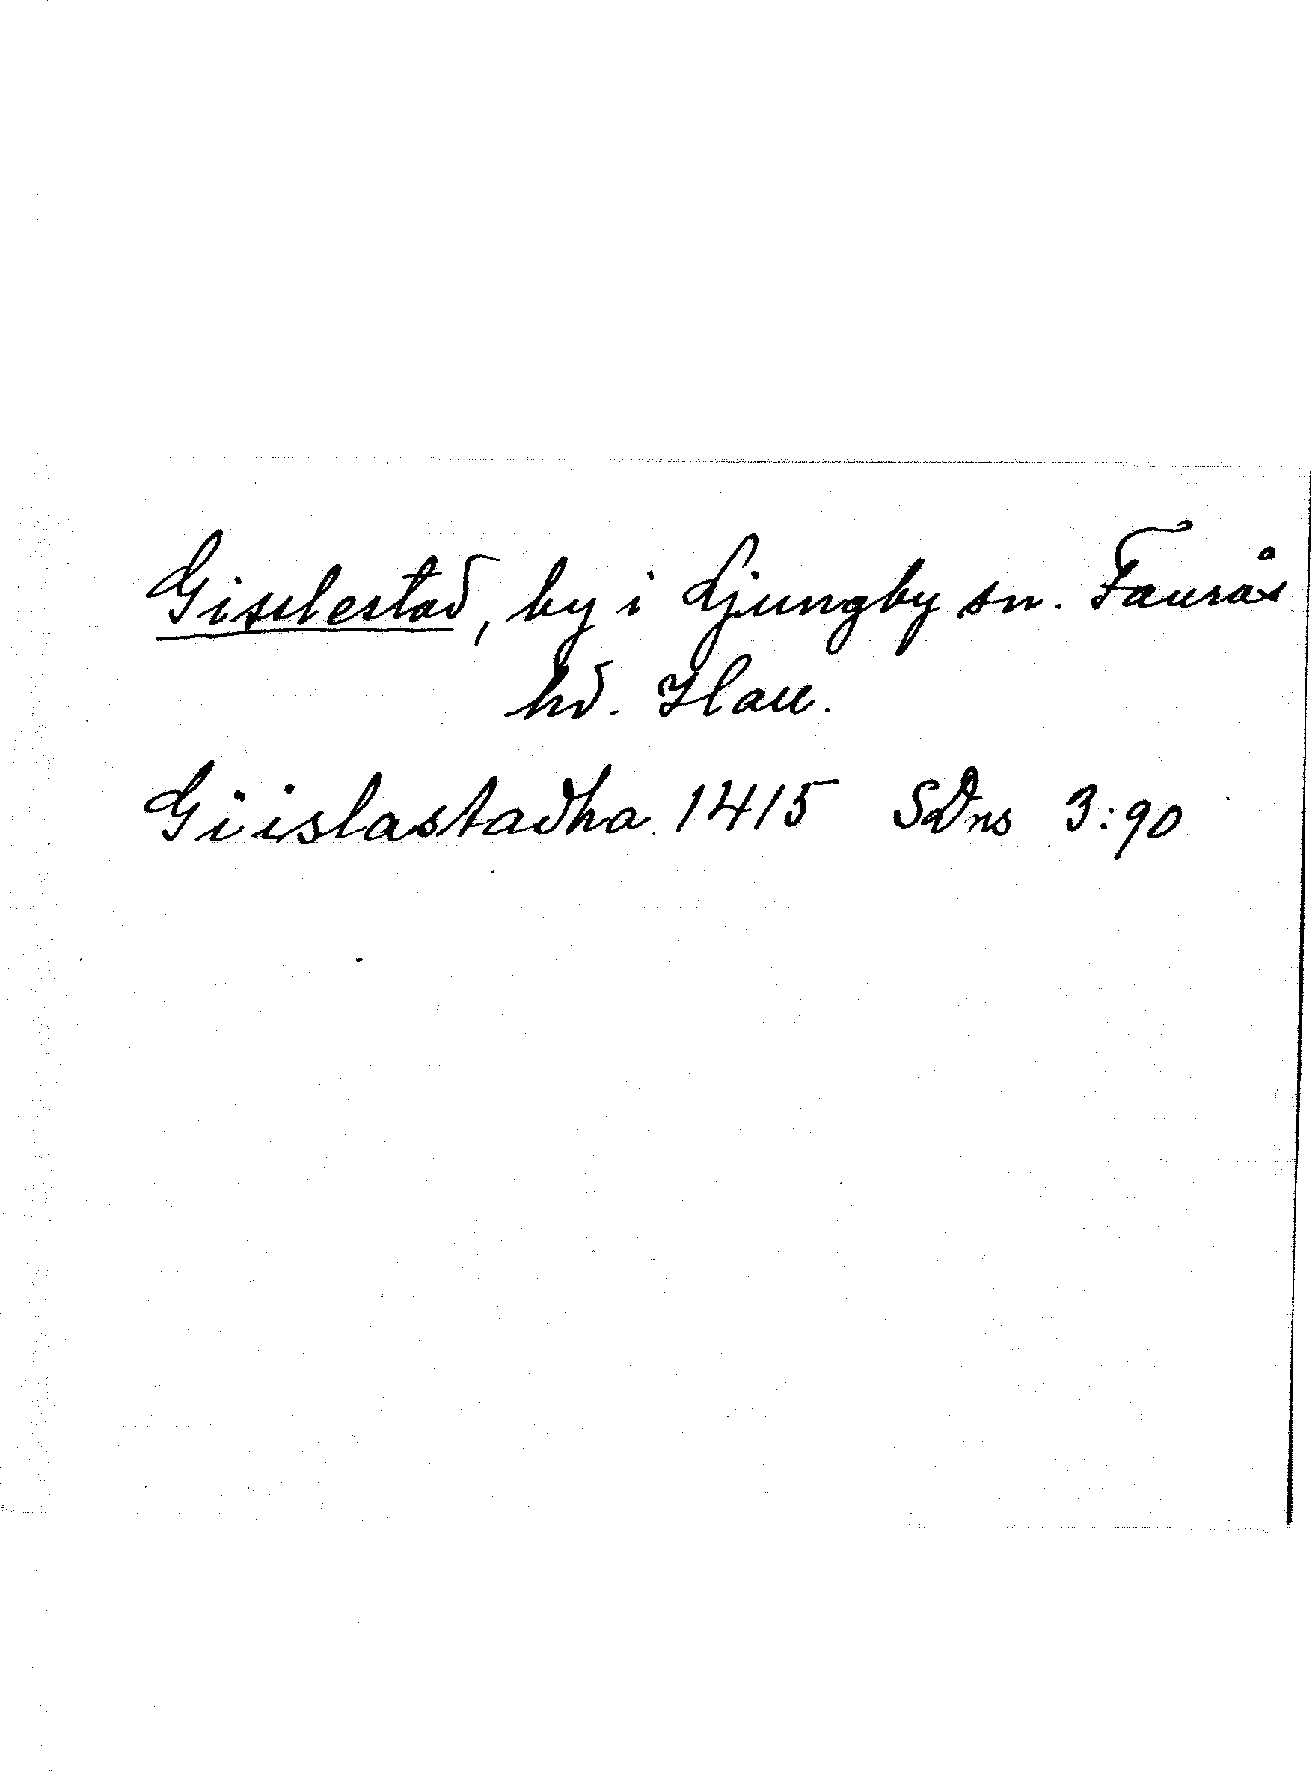 Gisslestad, by i Ljungby sn. Faurås
hd. Hall.
Giislastadha 1415 SDns 3:90